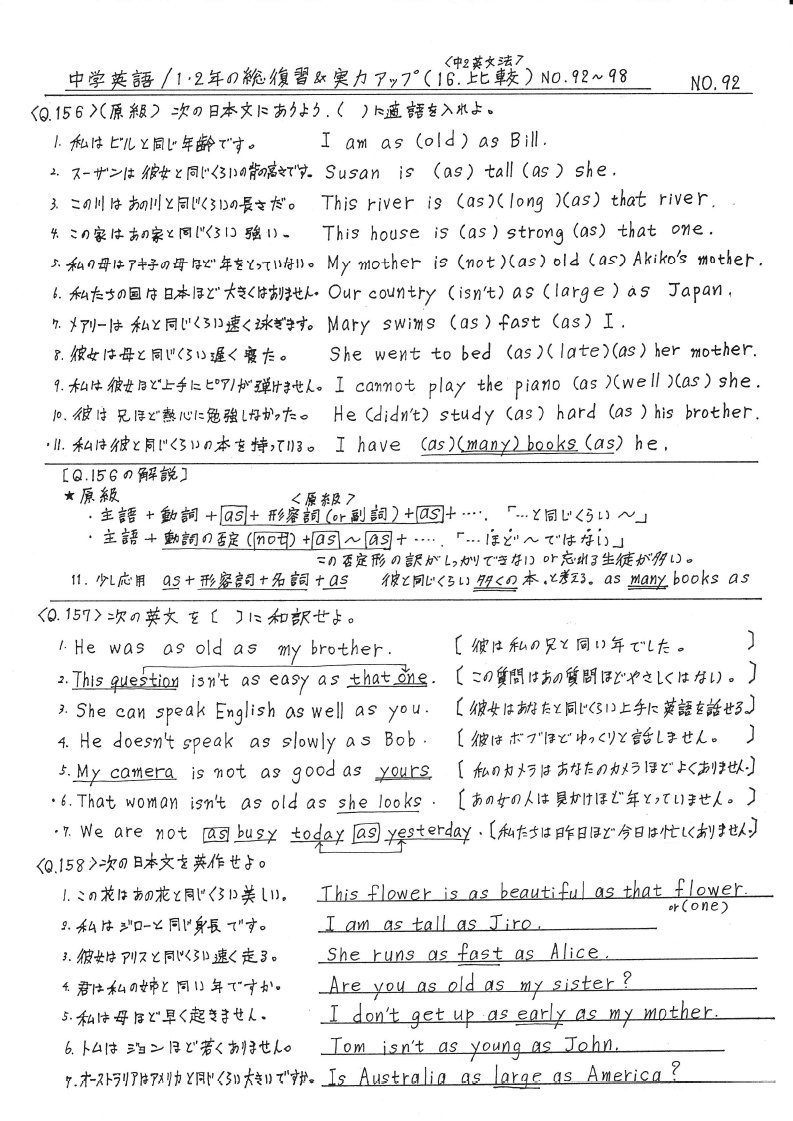 〈中2英文法〉
中学英語/1・2年の総復習&実力アップ(16.比較)NO.92~98 NO.92
〈Q.156〉(原級) 次の日本文にあうよう、( )に適語を入れよ。
1. 私はビルと同じ年齢です。 I am as (old) as Bill.
2. スーザンは彼女と同じくらいの背の高さです。 Susan is (as) tall (as) she.
3. この川はあの川と同じくらいの長さだ。 This river is (as)(long)(as) that river.
4. この家はあの家と同じくらい強い。 This house is (as) strong (as) that one.
5. 私の母はアキ子の母ほど年をとっていない。 My mother is (not)(as) old (as) Akiko's mother.
6. 私たちの国は日本ほど大きくはありません。 Our country (isn't) as (large) as Japan.
7. メアリーは私と同じくらい速く泳ぎます。 Mary swims (as) fast (as) I.
8. 彼女は母と同じくらい遅く寝た。 She went to bed (as)(late)(as) her mother.
9. 私は彼女ほど上手にピアノが弾けません。 I cannot play the piano (as)(well)(as) she.
10. 彼は兄ほど熱心に勉強しなかった。 He (didn't) study (as) hard (as) his brother.
・11. 私は彼と同じくらいの本を持っている。 I have (as)(many) books (as) he.
[Q.156の解説]
★原級 〈原級〉
・主語+動詞+as+形容詞(or副詞)+as+….「…と同じくらい~」
・主語+動詞の否定(not)+as~as+….「…ほど~ではない」
この否定形の訳がしっかりできない or 忘れる生徒が多い。
11. 少し応用 as+形容詞+名詞+as 彼と同じくらい多くの本。と考える。as many books as
〈Q.157〉次の英文を[ ]に和訳せよ。
1. He was as old as my brother. [彼は私の兄と同い年でした。]
2. This question isn't as easy as that one. [この質問はあの質問ほどやさしくはない。]
3. She can speak English as well as you. [彼女はあなたと同じくらい上手に英語を話せる]
4. He doesn't speak as slowly as Bob. [彼はボブほどゆっくりと話しません。]
5. My camera is not as good as yours [私のカメラはあなたのカメラほどよくありません。]
・6. That woman isn't as old as she looks. [あの女の人は見かけほど年とっていません。]
・7. We are not as busy today as yesterday. [私たちは昨日ほど今日は忙しくありません。]
〈Q.158〉次の日本文を英作せよ。
1. この花はあの花と同じくらい美しい。 This flower is as beautiful as that flower.
or(one)
2. 私はジローと同じ身長です。 I am as tall as Jiro.
3. 彼女はアリスと同じくらい速く走る。 She runs as fast as Alice.
4. 君は私の姉と同い年ですか。 Are you as old as my sister?
5. 私は母ほど早く起きません。 I don't get up as early as my mother.
6. トムはジョンほど若くありません。 Tom isn't as young as John.
7. オーストラリアはアメリカと同じくらい大きいですか。 Is Australia as large as America?